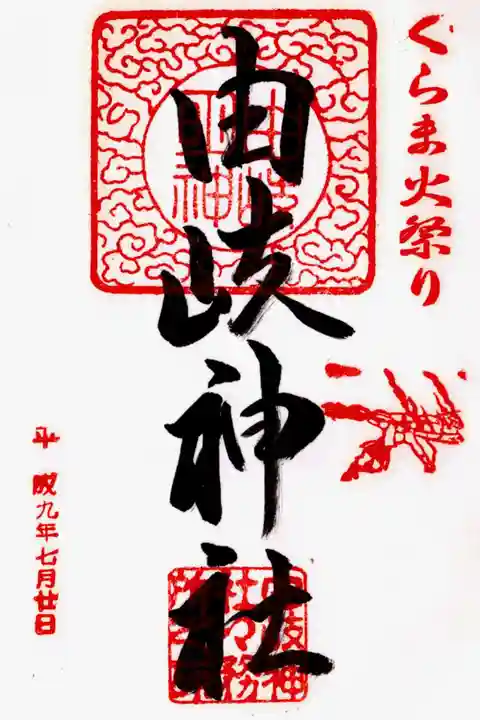 くらま火祭り
由岐神社
由岐神社社務所印
平成九年七月廿日